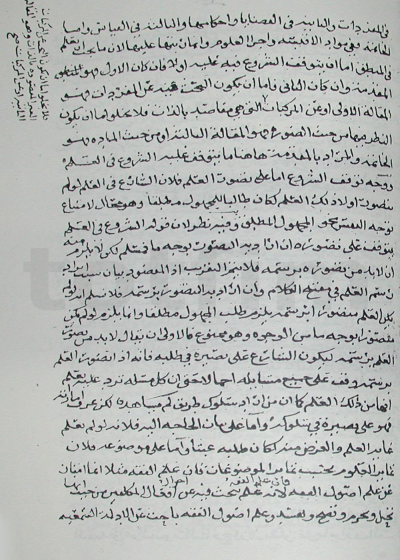 في المفردات والثانية في القضايا واحكامها والثالثة في القياس واما
الخاتمة ففي مواد الاقيسة واجزاء العلوم وانما رتبها عليها لان ما يجب ان يعلم
في المنطق اما ان يتوقف الشروع فيه عليه اولا فان كان الاول فهو
المقدمة وان كان الثاني فاما ان يكون البحث فيه عن المفردات فهو
المقالة الاولى او عن المركبات التي هي مقاصد بالذات فلا يخلو اما ان يكون
النظر فيها من حيث الصورة فهو المقالة الثالثة او من حيث المادة فهو
الخاتمة والمراد بالمقدمة هاهنا ما يتوقف عليه الشروع في العلم
ووجه توقف الشروع اما على تصور العلم فلان الشارع في العلم لو لم
يتصور اولا ذلك العلم لكان طالبا للمجهول مطلقا وهو محال لامتناع
توجه النفس نحو المجهول المطلق وفيه نظر لان قوله الشروع في العلم
يتوقف على تصوره ان اراد به التصور بوجه ما فمسلم لكن لا يلزم منه
ان لابد من تصوره برسمه فلا يتم التقريب اذ المقصود بيان سبب ايراد
رسم العلم في مفتتح الكلام وان اراد به التصور برسمه فلا نسلم انه لو لم
يكن العلم متصورا برسمه يلزم طلب المجهول مطلقا وانما يلزم لو لم يكن
متصورا بوجه ما من الوجوه وهو ممنوع فالاولى ان يقال لابد من تصور
العلم برسمه ليكون الشارع على بصيرة في طلبه فانه اذا تصور العلم
برسمه وقف على جميع مسائله اجمالا حتى ان كل مسئلة ترد عليه يعلم
انها من ذلك العلم كما ان من اراد سلوك طريق لم يشاهده لكن عرف اماراته
فهو على بصيرة في سلوكه واما على بيان الحاجة اليه فلانه لو لم يعلم
غاية العلم والغرض منه لكان طلبه عبثا واما على موضوعه فلان
تمايز العلوم بحسب تمايز الموضوعات فان علم الفقه مثلا انما امتاز
عن علم اصول الفقه لانه علم يبحث فيه عن افعال المكلفين من حيث انها
تحل وتحرم وتصح وتفسد وعلم اصول الفقه باحث عن الادلة السمعية